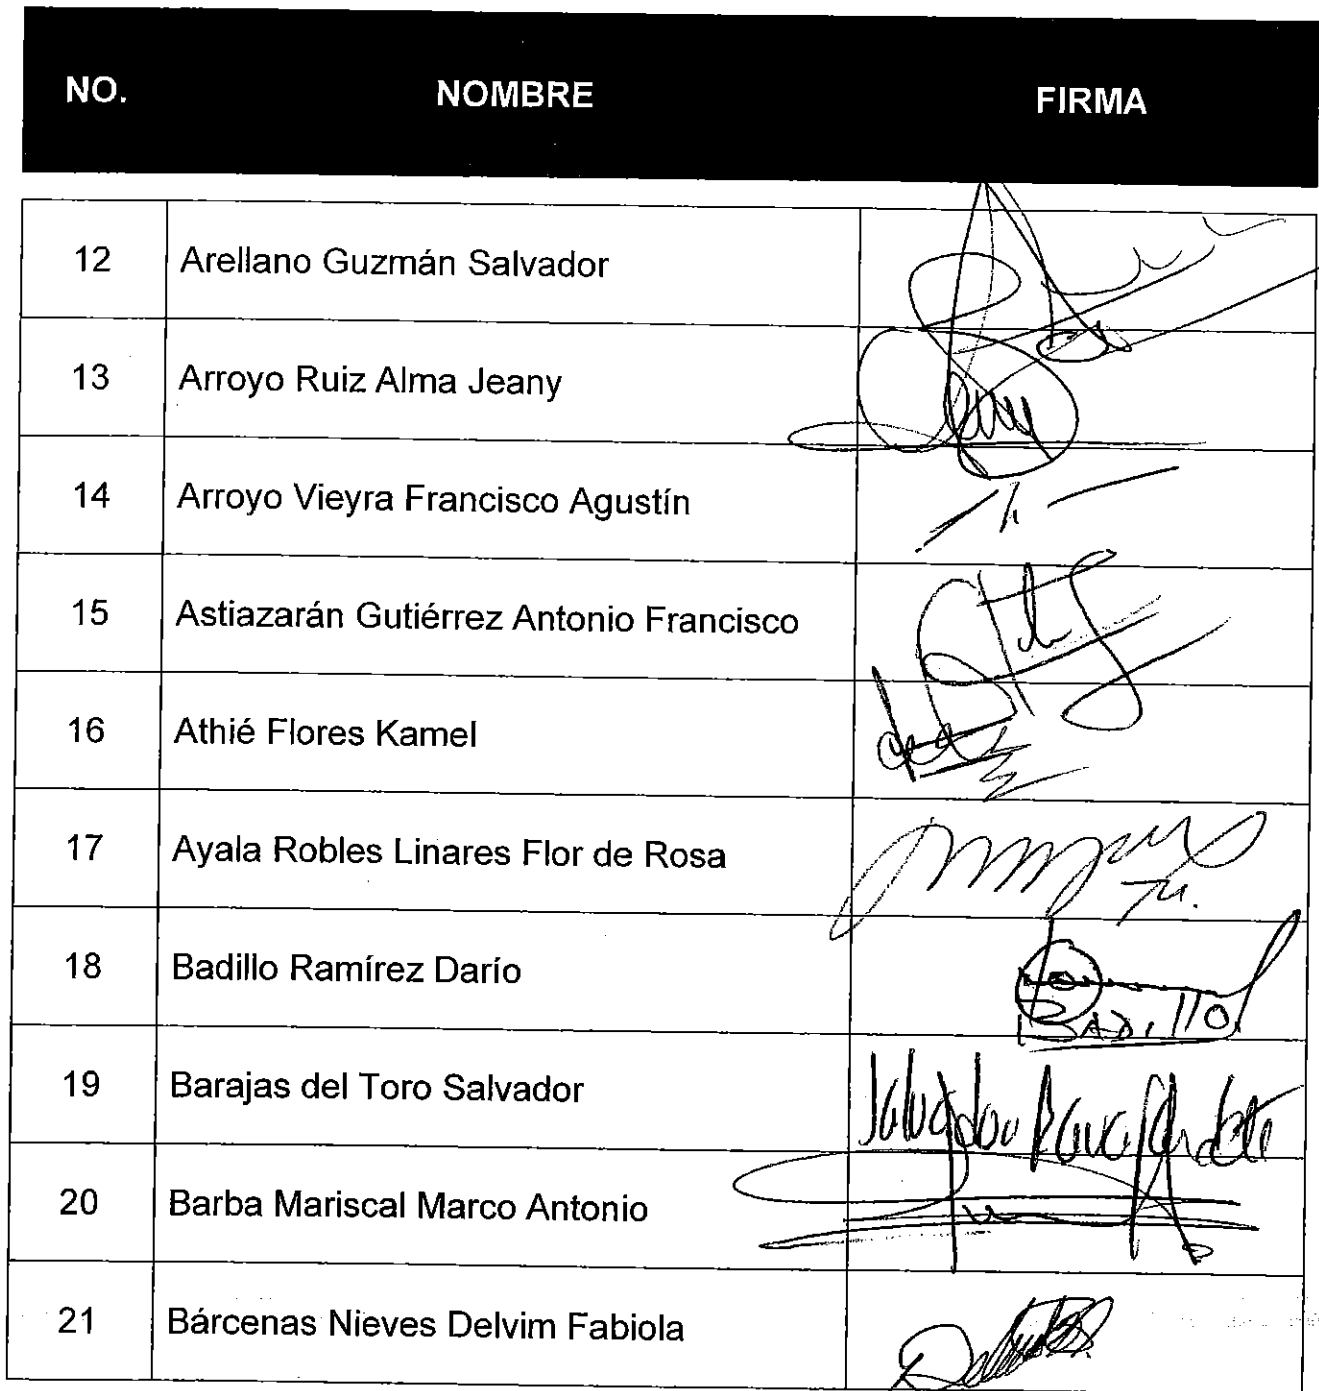 NO. NOMBRE FIRMA
12 Arellano Guzmán Salvador
13 Arroyo Ruiz Alma Jeany
14 Arroyo Vieyra Francisco Agustín
15 Astiazarán Gutiérrez Antonio Francisco
16 Athié Flores Kamel
17 Ayala Robles Linares Flor de Rosa
18 Badillo Ramírez Darío
BADillo
19 Barajas del Toro Salvador
20 Barba Mariscal Marco Antonio
21 Bárcenas Nieves Delvim Fabiola